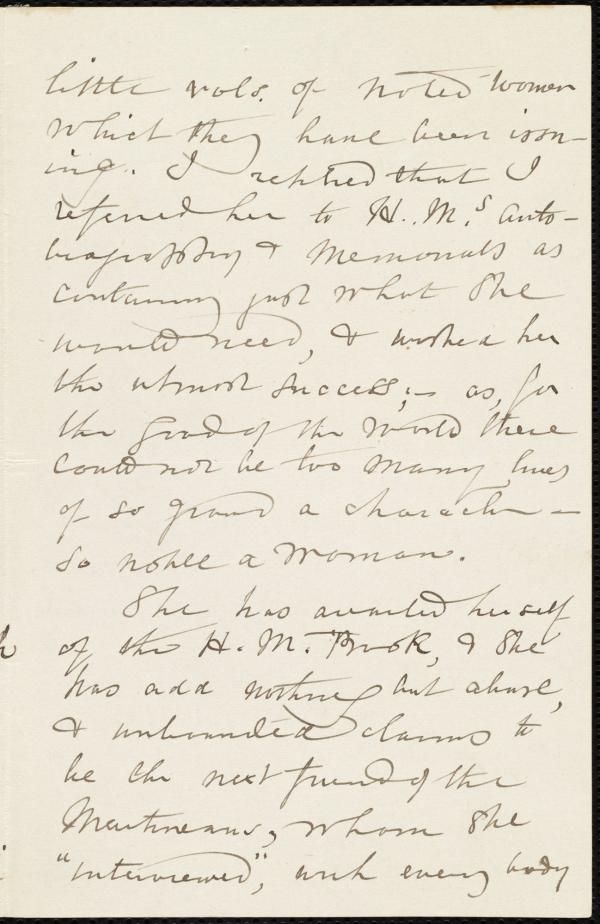 little vols. of noted women
which they have been issu-
ing. I replied that I
referred her to H. M.s Auto-
biography & Memorials as
containing just what she
would need, & wished her
the utmost success; – as, for
the good of the world there
could not be too many lives
of so grand a character –
so noble a woman.
She has availed herself
of the H. M. Book, & she
has add nothing but abuse,
& unbounded claims to
be the next friend of the
Martineaus, whom she
"interviewed", with every body